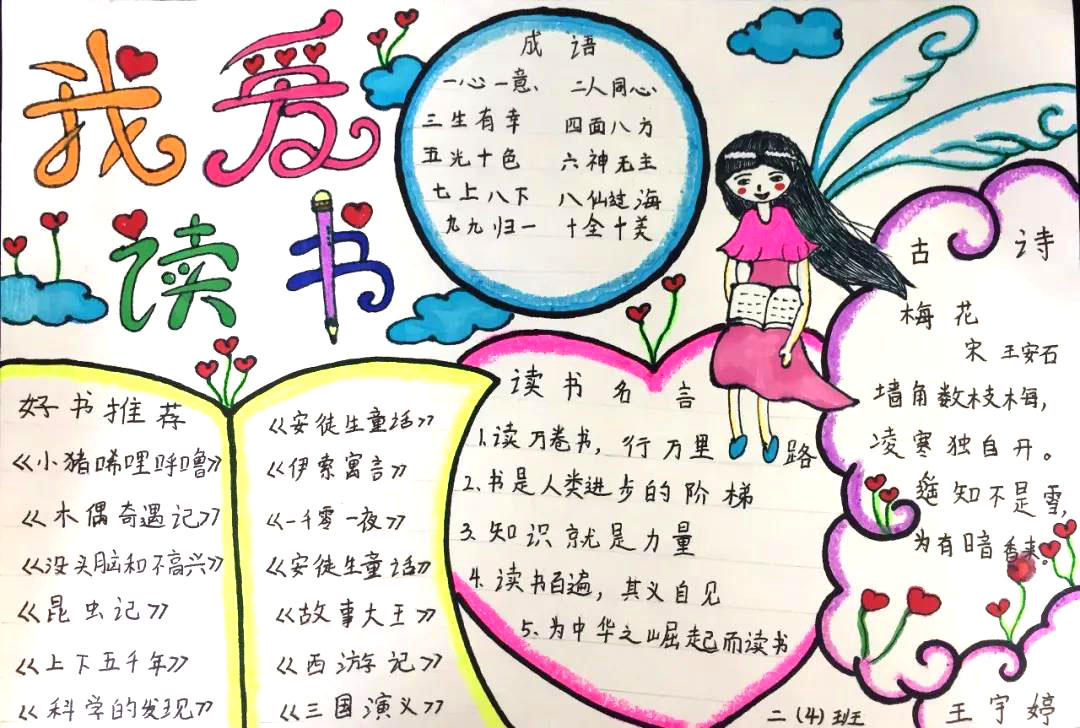 我爱
读书
成语
一心一意、 二人同心
三生有幸 四面八方
五光十色 六神无主
七上八下 八仙过海
九九归一 十全十美
好书推荐
《小猪唏哩呼噜》
《木偶奇遇记》
《没头脑和不高兴》
《昆虫记》
《上下五千年》
《科学的发现》
《安徒生童话》
《伊索寓言》
《一千零一夜》
《安徒生童话》
《故事大王》
《西游记》
《三国演义》
读书名言
1.读万卷书，行万里路
2.书是人类进步的阶梯
3.知识就是力量
4.读书百遍，其义自见
5、为中华之崛起而读书
古诗
梅花
宋 王安石
墙角数枝梅，
凌寒独自开。
遥知不是雪，
为有暗香来。
二（4）班
王宇婷